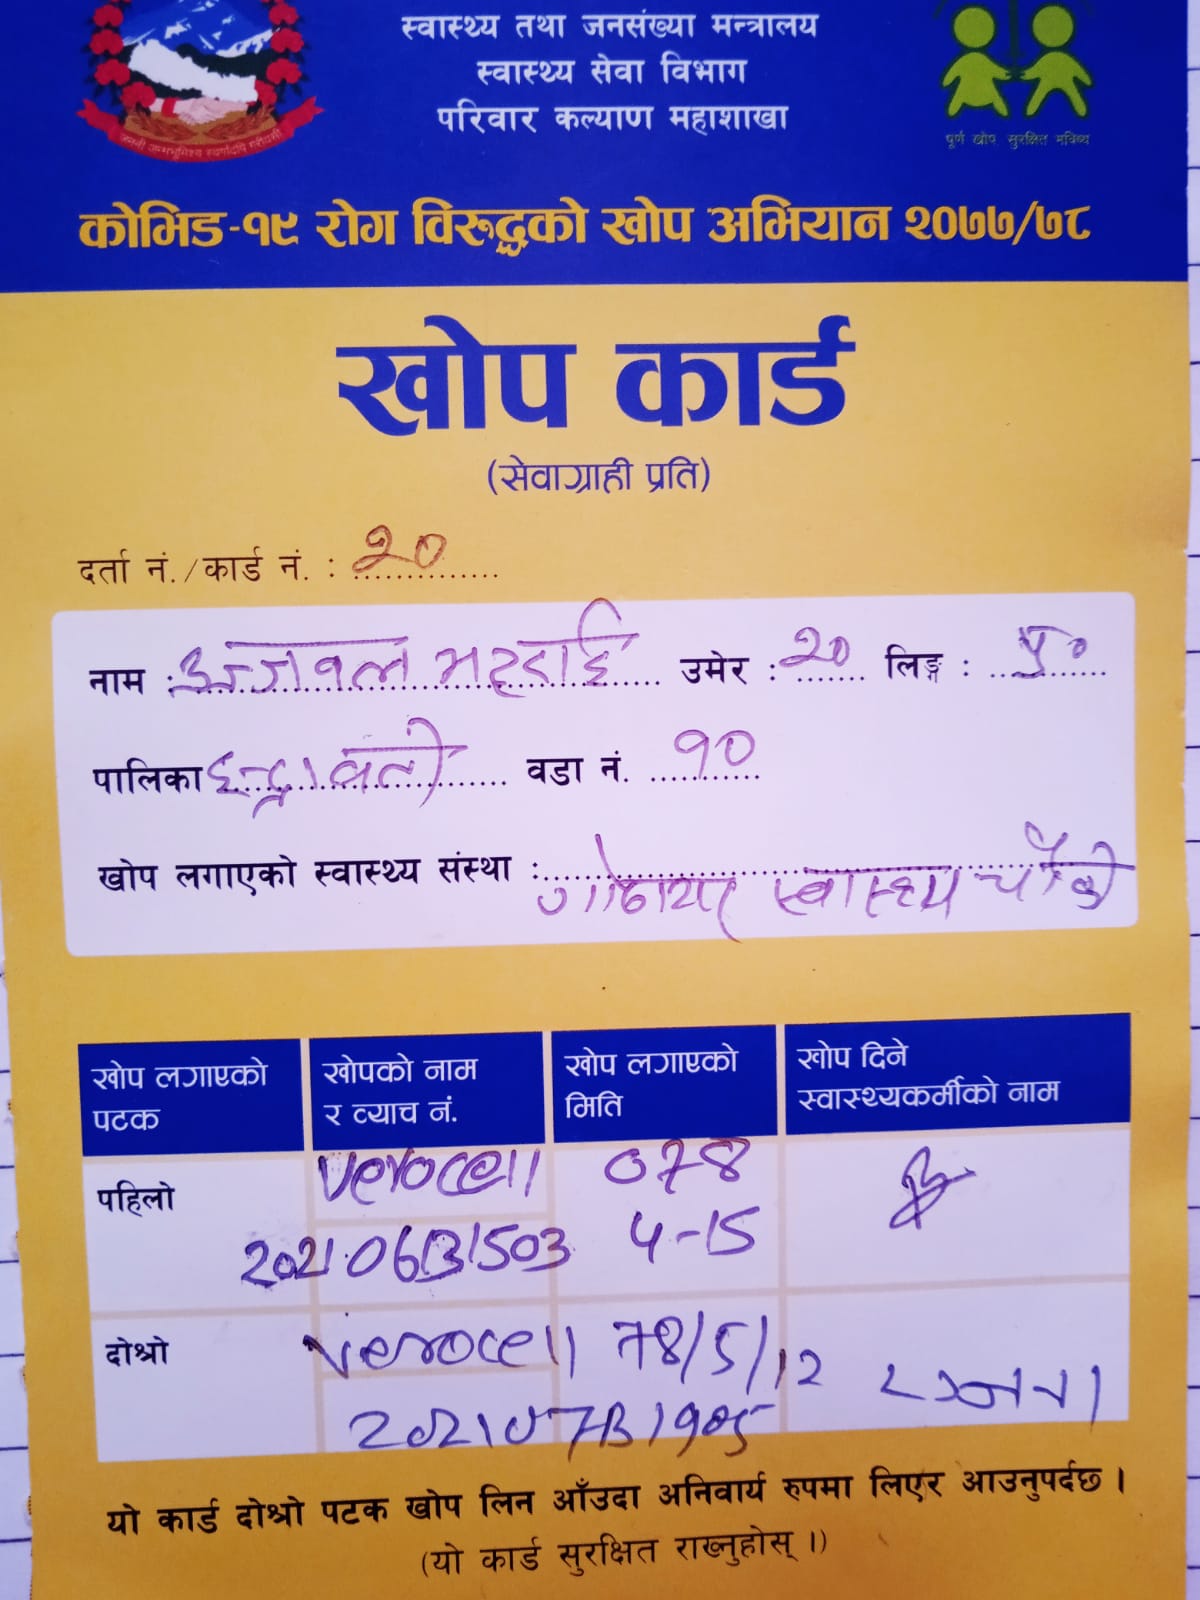 स्वास्थ्य तथा जनसंख्या मन्त्रालय
स्वास्थ्य सेवा विभाग
परिवार कल्याण महाशाखा
जननी जन्मभूमिश्च स्वर्गादपि गरीयसी
पूर्ण खोप, सुरक्षित भविष्य
कोभिड-१९ रोग विरुद्धको खोप अभियान २०७७/७८
खोप कार्ड
(सेवाग्राही प्रति)
दर्ता नं./कार्ड नं. : २०
नाम : उज्जवल भट्टराई उमेर : २० लिङ्ग : पु०
पालिका इन्द्रावती वडा नं. १०
खोप लगाएको स्वास्थ्य संस्था : स्वास्थ्य चौकी
खोप लगाएको पटक
खोपको नाम र व्याच नं.
खोप लगाएको मिति
खोप दिने स्वास्थ्यकर्मीको नाम
पहिलो verocell 078
202106B1503 4-15
दोश्रो verocell 78/5/12
202107B1905
यो कार्ड दोश्रो पटक खोप लिन आँउदा अनिवार्य रुपमा लिएर आउनुपर्दछ ।
(यो कार्ड सुरक्षित राख्नुहोस् ।)